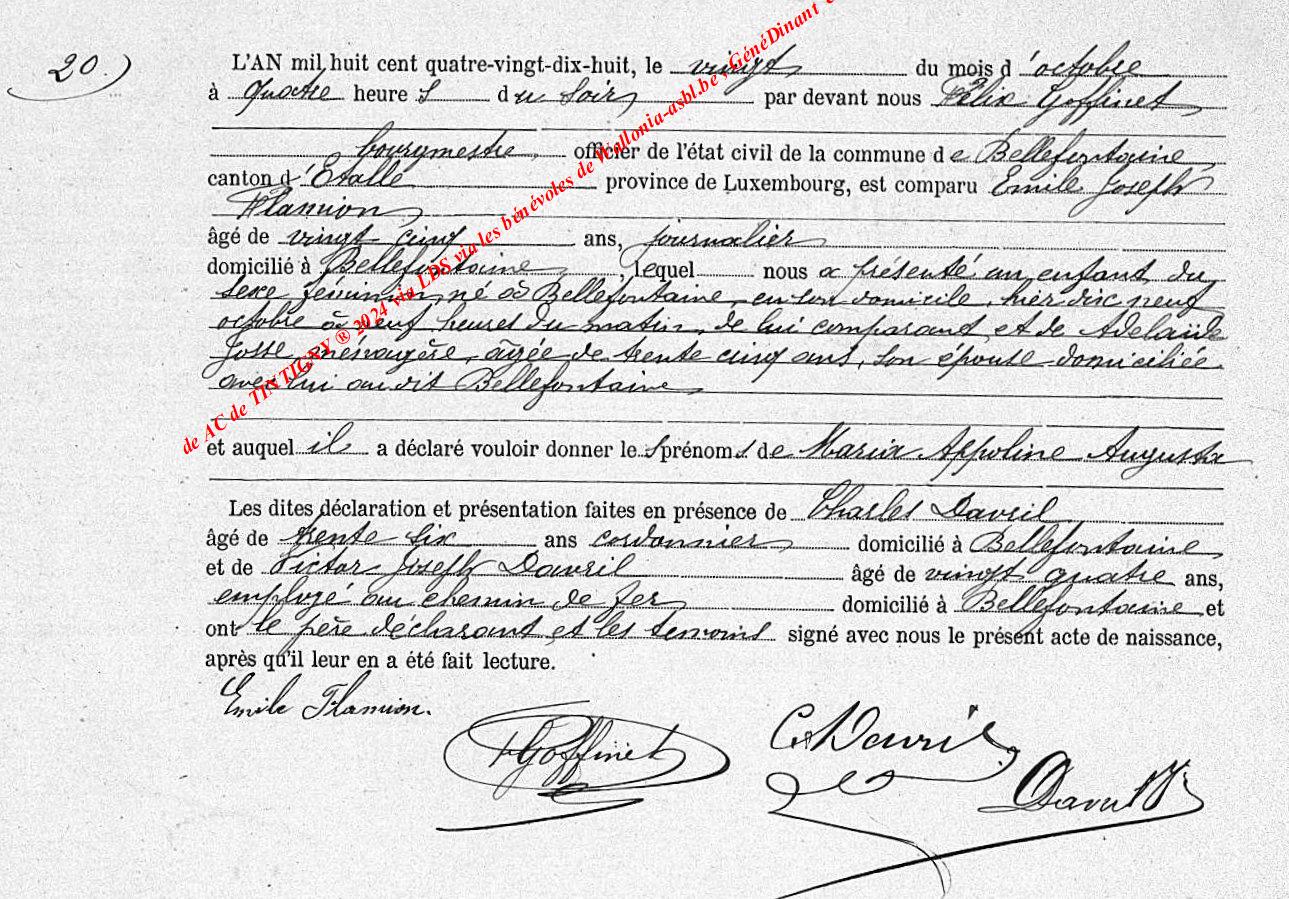 20.)
L'AN mil huit cent quatre-vingt-dix-huit, le vingt du mois d'octobre
à quatre heures du soir par devant nous Félix Goffinet
bourgmestre, officier de l'état civil de la commune de Bellefontaine,
canton d'Étalle province de Luxembourg, est comparu Emile Joseph
Flamion,
âgé de vingt cinq ans, journalier
domicilié à Bellefontaine, lequel nous a présenté un enfant du
sexe féminin, né à Bellefontaine, en son domicile, hier dix neuf
octobre à neuf heures du matin, de lui comparant, et de Adelaïde
Josse, ménagère, âgée de trente cinq ans, son épouse domiciliée
avec lui au dit Bellefontaine
et auquel il a déclaré vouloir donner les prénoms de Maria Appoline Augusta
Les dites déclaration et présentation faites en présence de Charles Davril
âgé de trente six ans cordonnier domicilié à Bellefontaine
et de Victor Joseph Davril âgé de vingt quatre ans,
employé au chemin de fer domicilié à Bellefontaine et
ont le père déclarant et les temoins signé avec nous le présent acte de naissance,
après qu'il leur en a été fait lecture.
Emile Flamion.
FGoffinet
Ch Davril
Davril VJ
de AC de TINTIGNY ® 2024 via LDS via les bénévoles de Wallonia-asbl.be - GénéDinant